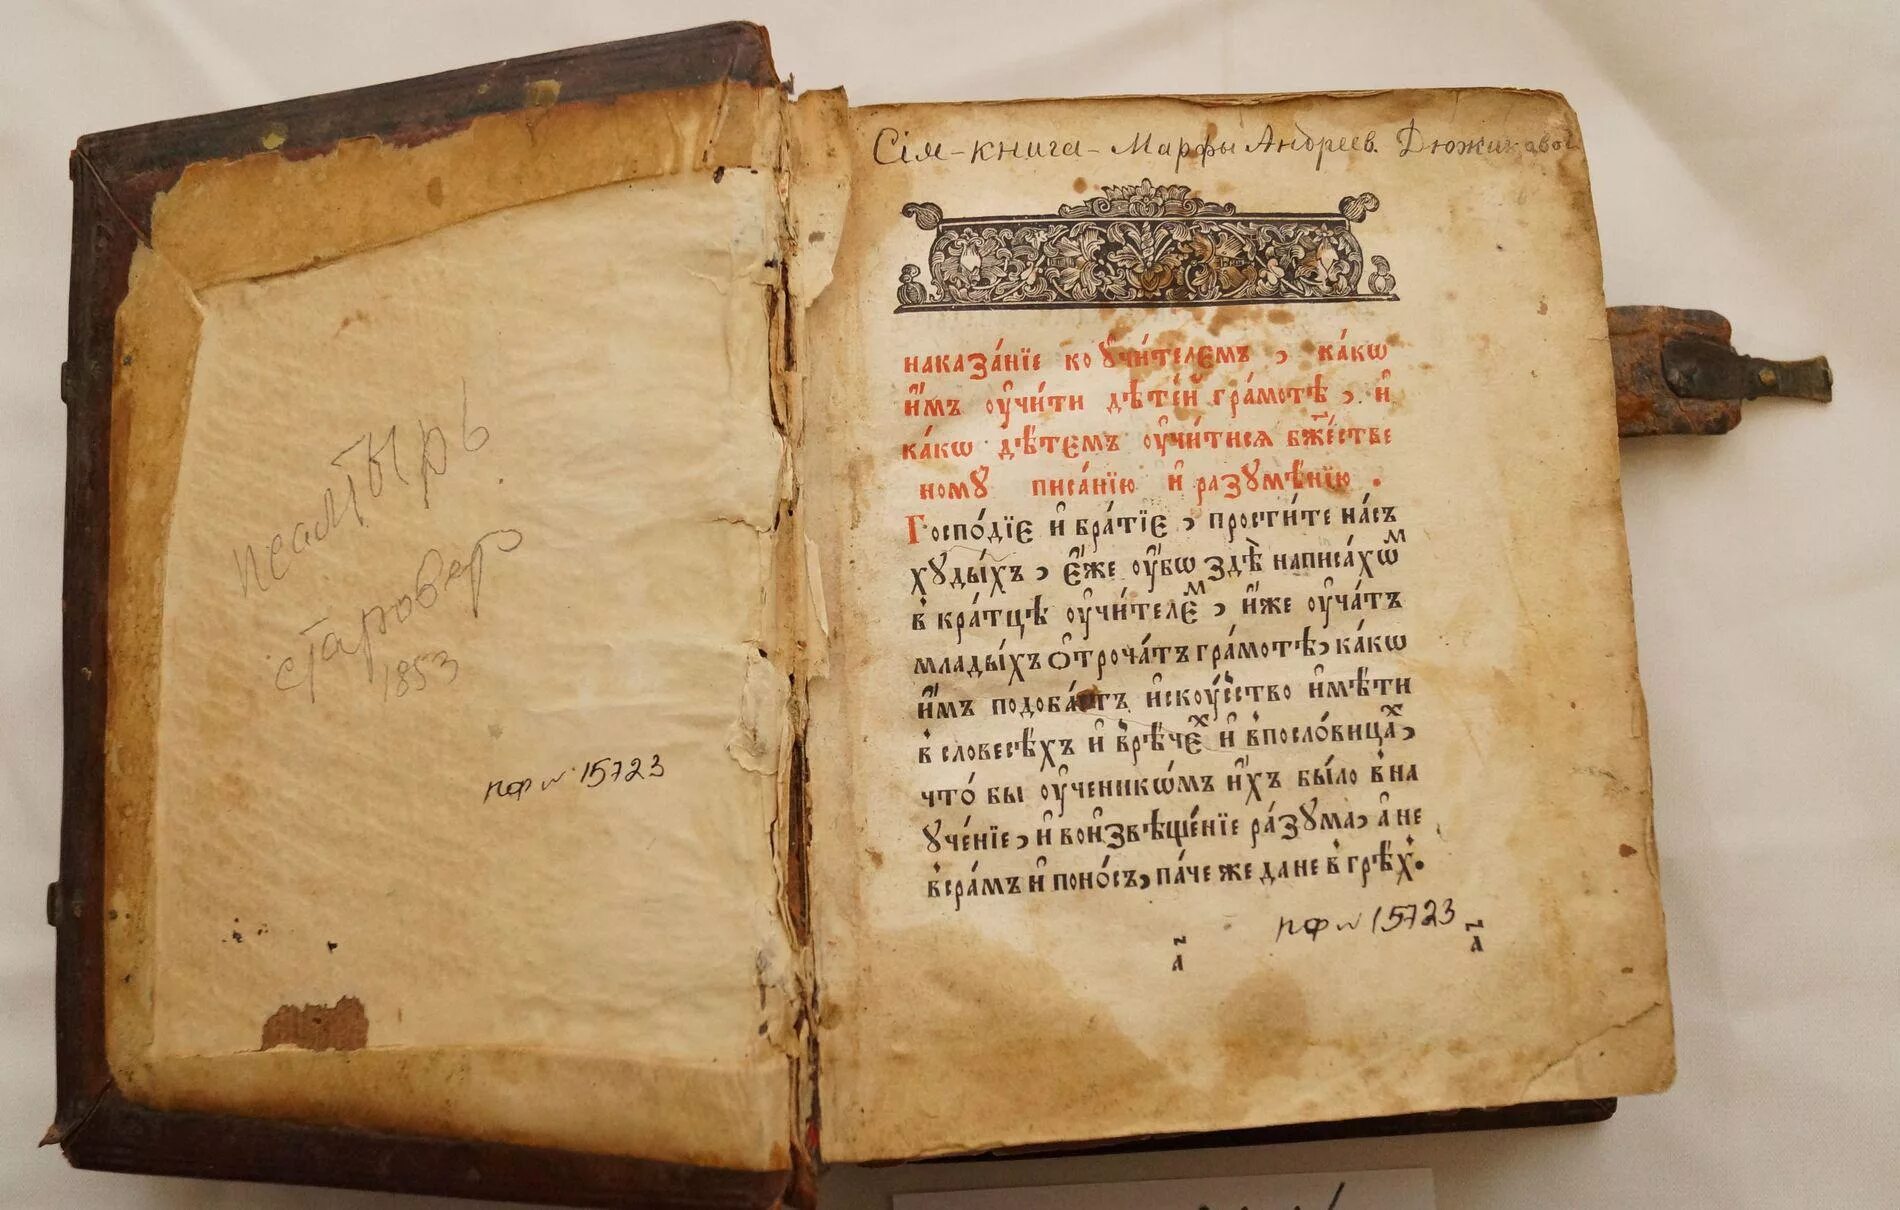 псалтырь
старовер
1853
ПФ № 15723
Сія - книга - Марфы Андреев. Дюжиковой
наказа́нїе ко ᲂу҆чи́телемъ , ка́кѡ
и҆̀мъ ᲂу҆чи́ти дѣте́й гра́мотѣ , и҆
ка́кѡ дѣ́темъ ᲂу҆чи́тисѧ бж҃е́стве
номꙋ писа́нїю и҆ разꙋмѣ́нїю .
Госпо́дїе и҆ бра́тїе , прости́те на́съ
хꙋды́хъ , є҆́же ᲂу҆́бѡ здѣ̀ написа́хѡⷨ
в кра́тцѣ ᲂу҆чи́телеⷨ , и҆́же ᲂу҆ча́тъ
млады́хъ ѻ҆троча́тъ гра́мотѣ, ка́кѡ
и҆̀мъ подоба́етъ и҆скꙋ́сство и҆мѣ́ти
в словесѣ́хъ и҆ врѣ́чеⷯ и҆ впосло́вицаⷯ,
что́ бы ᲂу҆ченикѡ́мъ и҆́хъ бы́ло вна
ꙋче́нїе, и҆ вои҆звѣще́нїе ра́зꙋма, а҆ не
всра́мъ и҆ поно́съ, па́че же да не в грѣ́х.
ПФ № 15723
а҃ а҃